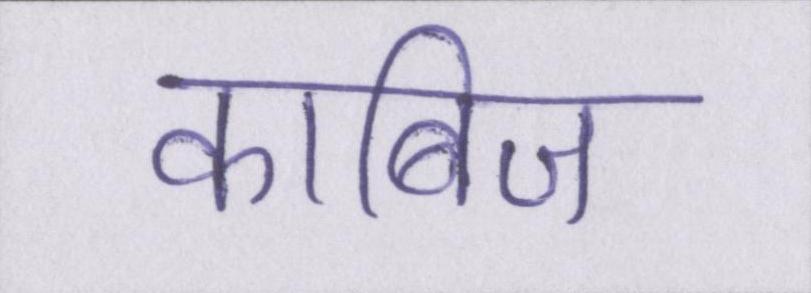 काबिज